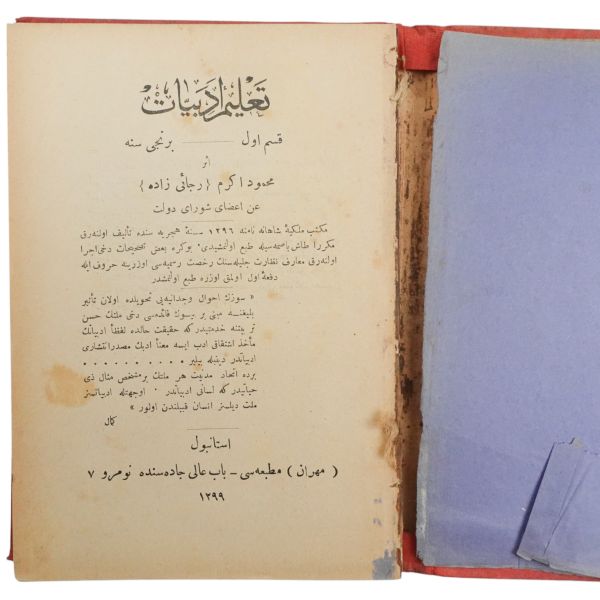 تعليم ادبيات
قسم اول — برنجى سنه
اثر
محمود اكرم { رجائى زاده }
عن اعضاى شوراى دولت
مكتب ملكيهٔ شاهانه نامنه ١٢٩٦ سنهٔ هجريه سنده تأليف اولنه‌رق
مكررا طاش باصمه‌سيله طبع اولنمشيدى . بوكره بعض تصحيحات دخى اجرا
اولنه‌رق معارف نظارت جليله‌سنك رخصت رسميه‌سى اوزرينه حروف ايله
دفعهٔ اول اولمق اوزره طبع اولنمشدر
« سوزك احوال وجدانيه‌يى تحويلده اولان تأثير
بليغنه مبنى بر يوك فائده‌سى دخى ملتك حسن
تربيتنه خدمتيدر كه حقيقت حالده لفظاً ادبياتك
مأخذ اشتقاقى ادب ايسه معناً ادبك مصدر انتشارى
ادبياتدر دينيله بيلير . . . . . . . . . .
برده اتحاد مدنيت هر ملتك بر مشخص مثال ذى
حياتيدر كه لسانى ادبياتدر . اوجهتله ادبياتسز
ملت ديلسز انسان قبيلندن اولور »
كمال
استانبول
( مهران ) مطبعه‌سى – باب عالى جاده‌سنده نومرو ٧
١٢٩٩